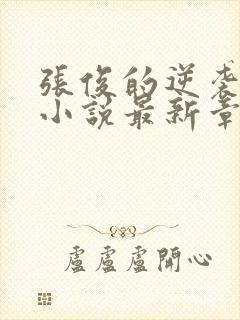 張俊的逆袭
小説最新章
盧盧盧開心